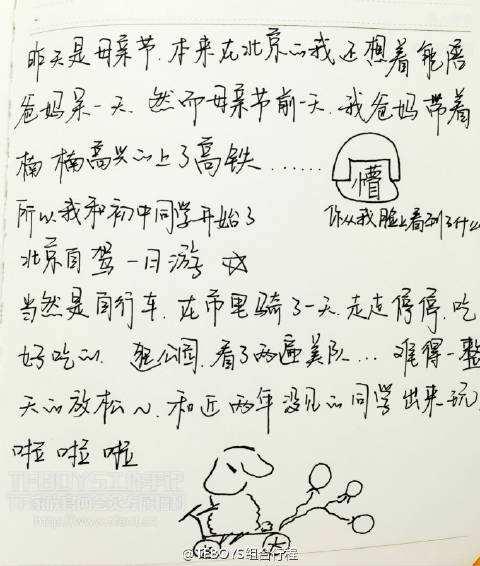 昨天是母亲节.本来在北京的我还想着能陪
爸妈呆一天.然而母亲节前一天.我爸妈带着
楠楠高兴的上了高铁......
懵
你从我脸上看到了什么
所以我和初中同学开始了
北京自驾一日游
当然是自行车.在市里骑了一天.走走停停.吃
好吃的.逛公园.看了两遍美队...难得一整
天的放松~.和近两年没见的同学出来玩
啦啦啦
大
@TFBOYS组合行程